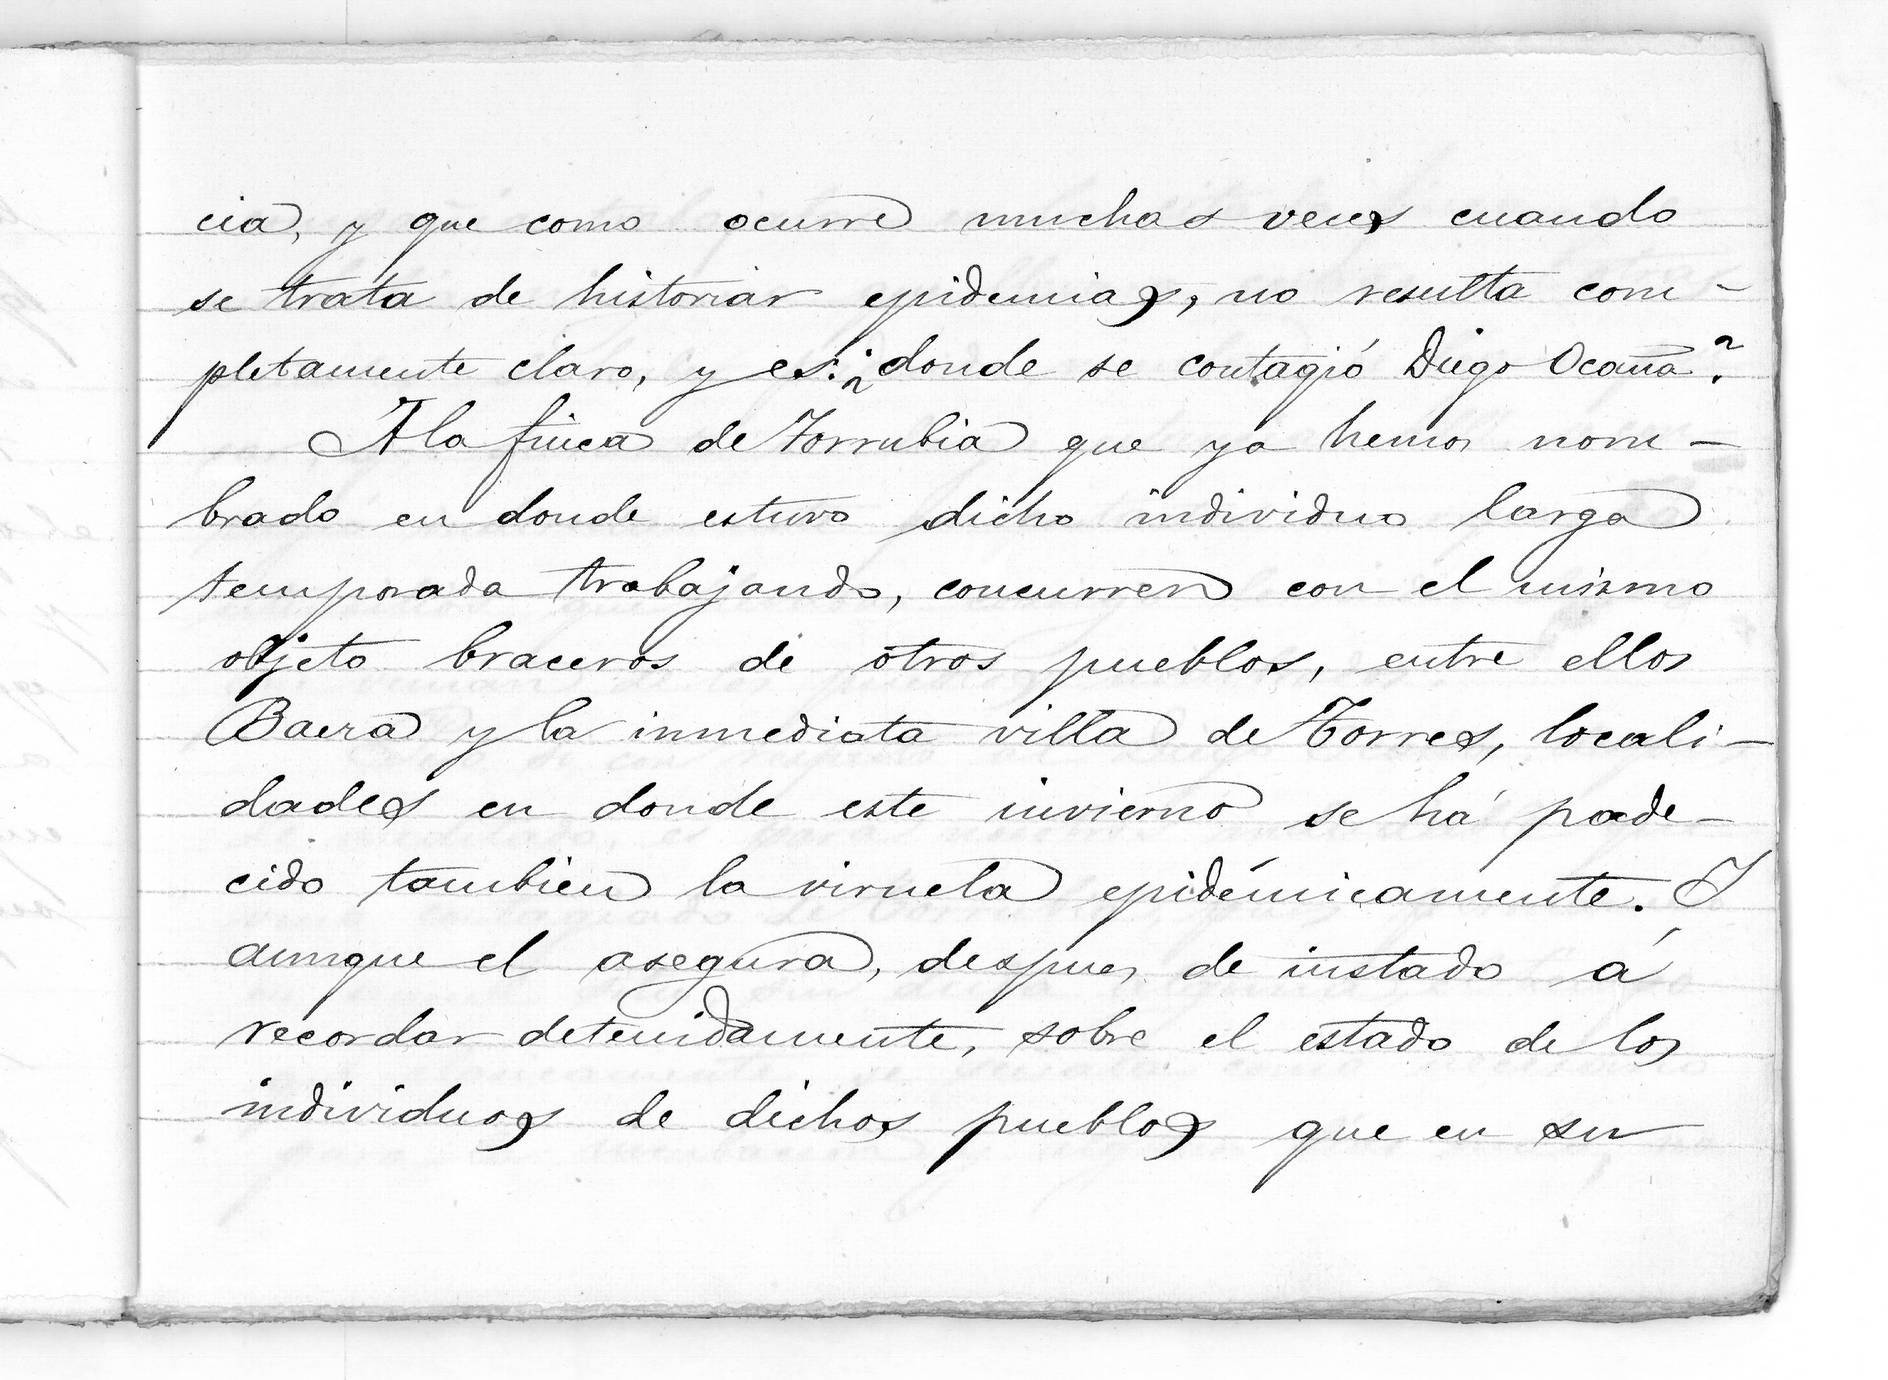 cia, y que como ocurre muchas veces cuando
se trata de historiar epidemias, no resulta com-
pletamente claro, y es: ¿donde se contagió Diego Ocaña?
A la finca de Torrubia que ya hemos nom-
brado en donde estuvo dicho individuo larga
temporada trabajando, concurren con el mismo
objeto braceros de otros pueblos, entre ellos
Baeza y la inmediata villa de Torres, locali-
dades en donde este invierno se há pade-
cido tambien la viruela epidémicamente. Y
aunque el asegura, despues de instado á
recordar detenidamente, sobre el estado de los
individuos de dichos pueblos que en su